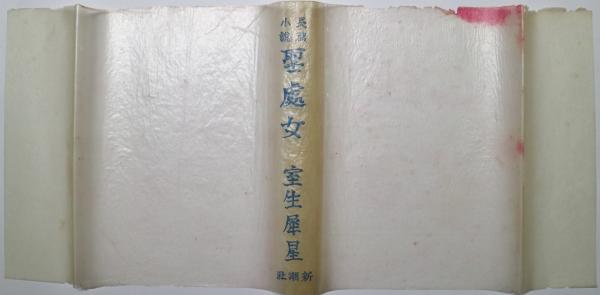 長篇
小說
聖處女
室生犀星
新潮社